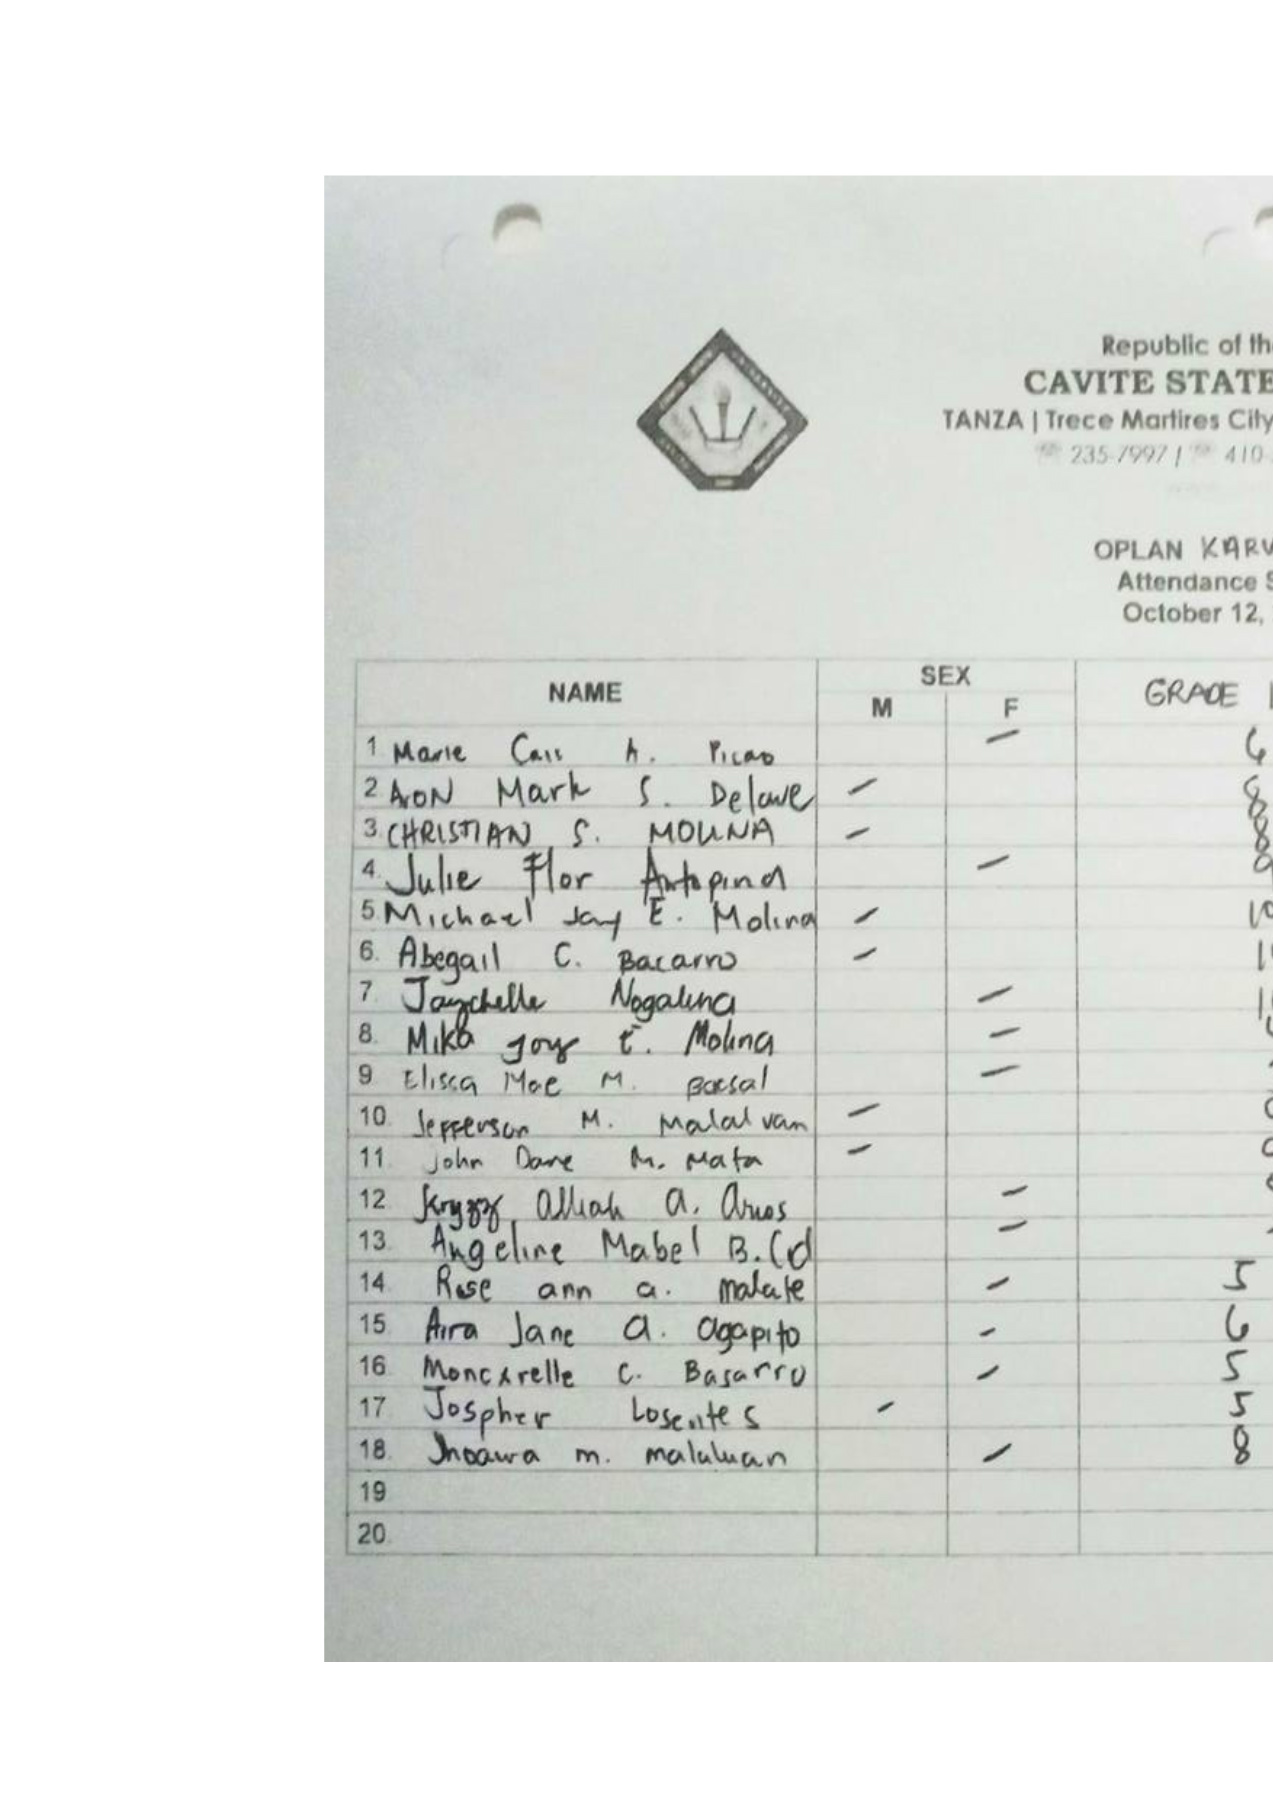 Republic of th
CAVITE STATE
TANZA | Trece Martires City
235-7997 / 410-
OPLAN KARU
Attendance S
October 12,
NAME SEX GRADE
M F
1 Marie Cass A. Picao 6
2 AroN Mark S. Delawe 8
3. CHRISTIAN S. MOLINA 8
4. Julie Flor Antopina 9
5. Michael Jay E. Molina 10
6. Abegail C. Bacarro
7. Jaychelle Nogalina
8. Mika Joy E. Molina
9 Elissa Mae M. Bacsal
10. Jefferson M. Malalvan
11. John Dane M. Mata
12 Kryzzy Alliah A. Arnos
13. Angeline Mabel B. Cid
14. Rose ann a. malate 5
15. Aira Jane A. Agapito 6
16. Moncarelle C. Basarro 5
17. Jospher Losentes 5
18. m. maluluan 8
19
20.